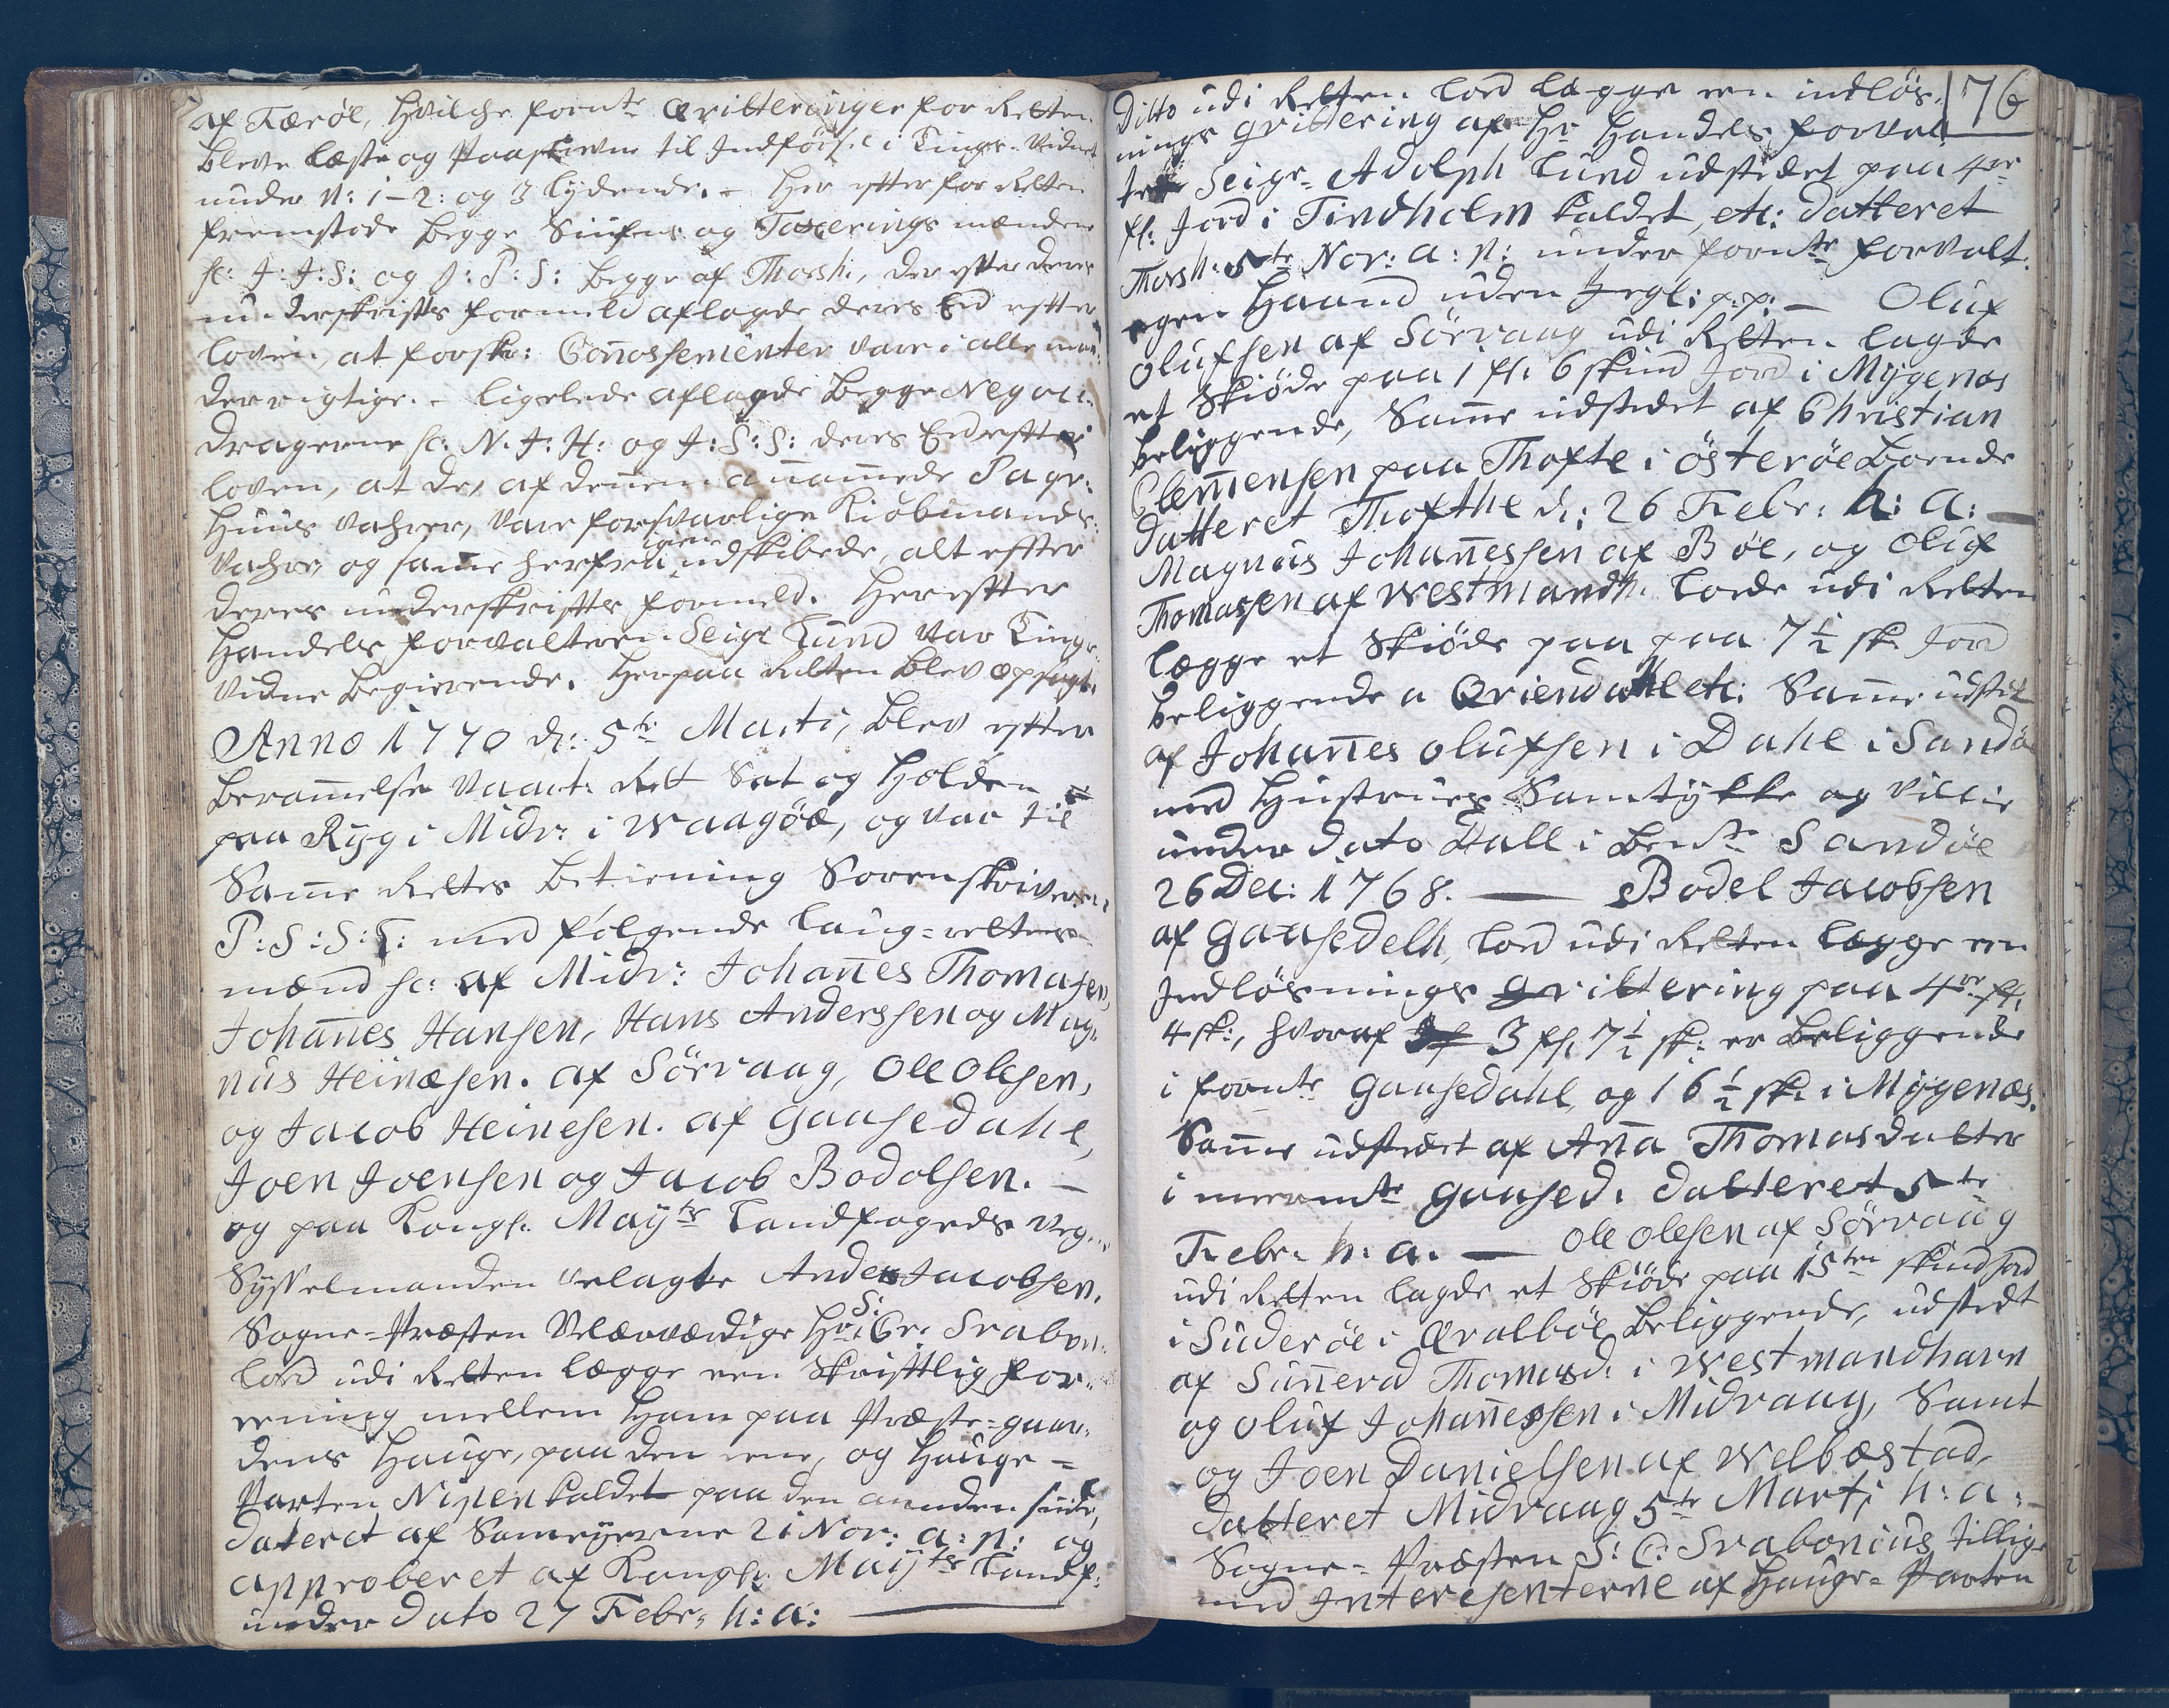 af Færöe, hvilche fornte Qvitteringer for Retten
bleve læste og Paaskrevne til Indförsel i Tings-Vidnet
under N: 1-2: og 3 lydende. - Her efter for Retten
fremstode begge Siufns og Taxerings mændene
sc: J: J: S: og J: P: S: begge af Thorsh:, der efter deres
underskrifts formeld aflagde deres Eed efter
loven, at forskr: Connossementer vare i alle maa-
der rigtige. - ligelede aflagde begge Negoti-
dragerne sc: N. J: H: og J: S: S: deres Eed efter
loven, at de, af dennem annammede Pagr-
huus Vahrer, vare forsvarlige Kiöbmands-
Vahre, og samme herfra igien udskibede, alt efter
deres underskrifts formeld. Herefter
Handels forvalteren Seigr Lund var Tings-
vidne begierende. Herpaa Retten blev opsagt.
Anno 1770 d: 5te Marti, blev efter
berammelse Vaart: Rett Sat og Holden
paa Ryg i Midv: i Waagöe, og var til
Samme Rettes betiening Sorenskriveren
P: S: S: L: med fölgende laug-rettes-
mænd sc: af Midv: Johannes Thomasen,
Johannes Hansen, Hans Anderssen og Mag-
nus Heinesen. af Sörvaag, Ole Olesen,
og Jacob Heinesen. af Gaasedahl,
Joen Joensen og Jacob Bodolsen. -
og paa Kongl. Mayts Landfogeds Vegne
Sysselmanden velagte Anders Jacobsen.
Sogne-Præsten Velærværdige Hr: S: Chr. Svabon:
lod udi Retten lægge een Skriftlig for-
eening mellem ham paa Præste-gaar-
dens Hauge, paa den eene, og Hauge-
Parten Nipen kaldet paa den anden siide,
dateret af Sameyerne 21 Nov: a: p: og
approberet af Kongl: Mayts Landf:
under Dato 27 Febr. h: a:
76
Ditto udi Retten lod lægge een indlös-
nings Qvittering af Hr Handels forval-
ter Seigr. Adolph Lund udstædet paa 4re
fl: Jord i Tindholm kaldet, etc: Datteret
Thorsh: 5te Nov: a: p: under fornte forvalt.
egen Haand uden Segl: p: p: - Oluf
Olufsen af Sörvaag udi Retten lagde
et Skiöde paa 1 fl: 6 skind Jord i Mygenes
beliggende, Samme udstædet af Christian
Clemensen paa Thofte i Österöe boende
Datteret Thofthe d: 26 Febr: h: a: -
Magnus Johannessen af Böe, og Oluf
Thomasen af Westmandh. lode udi Retten
lægge et Skiöde paa paa 7 1/2 sk. Jord
beliggende a Qviendahl etc: Samme udstæt
af Johannes Olufsen i Dahl i Sandö
med Hustrues Samtykke og Villie
under Dato Dall i bemte Sandöe
26 Dec: 1768. - Bodel Jacobsen
af Gaasedelh, lod udi Retten lægge een
Indlösnings Qvittering paa 4re fl.
4 sk:, hvoraf 3 fl. 7 1/2 sk: er beliggende
i fornte Gaasedahl, og 16 1/2 sk. i Mygenæs.
Samme udstædet af Anna Thomasdatter
i meermte Gaased. Datteret 5te
Febr. h: a. - Ole Olesen af Sörvaag
udi Retten lagde et Skiöde paa 15ten skind Jord
i Suderöe i Qvalböe beliggende, udstædt
af Sunneva Thomasd: i Westmandhavn
og Oluf Johannessen i Midvaag, Samt
og Joen Danielsen af Welbæstad,
Datteret Midvaag 5te Marti h: a: -
Sogne-Præsten S: C: Svabonius tillige
med Interesenterne af Hauge-Parten